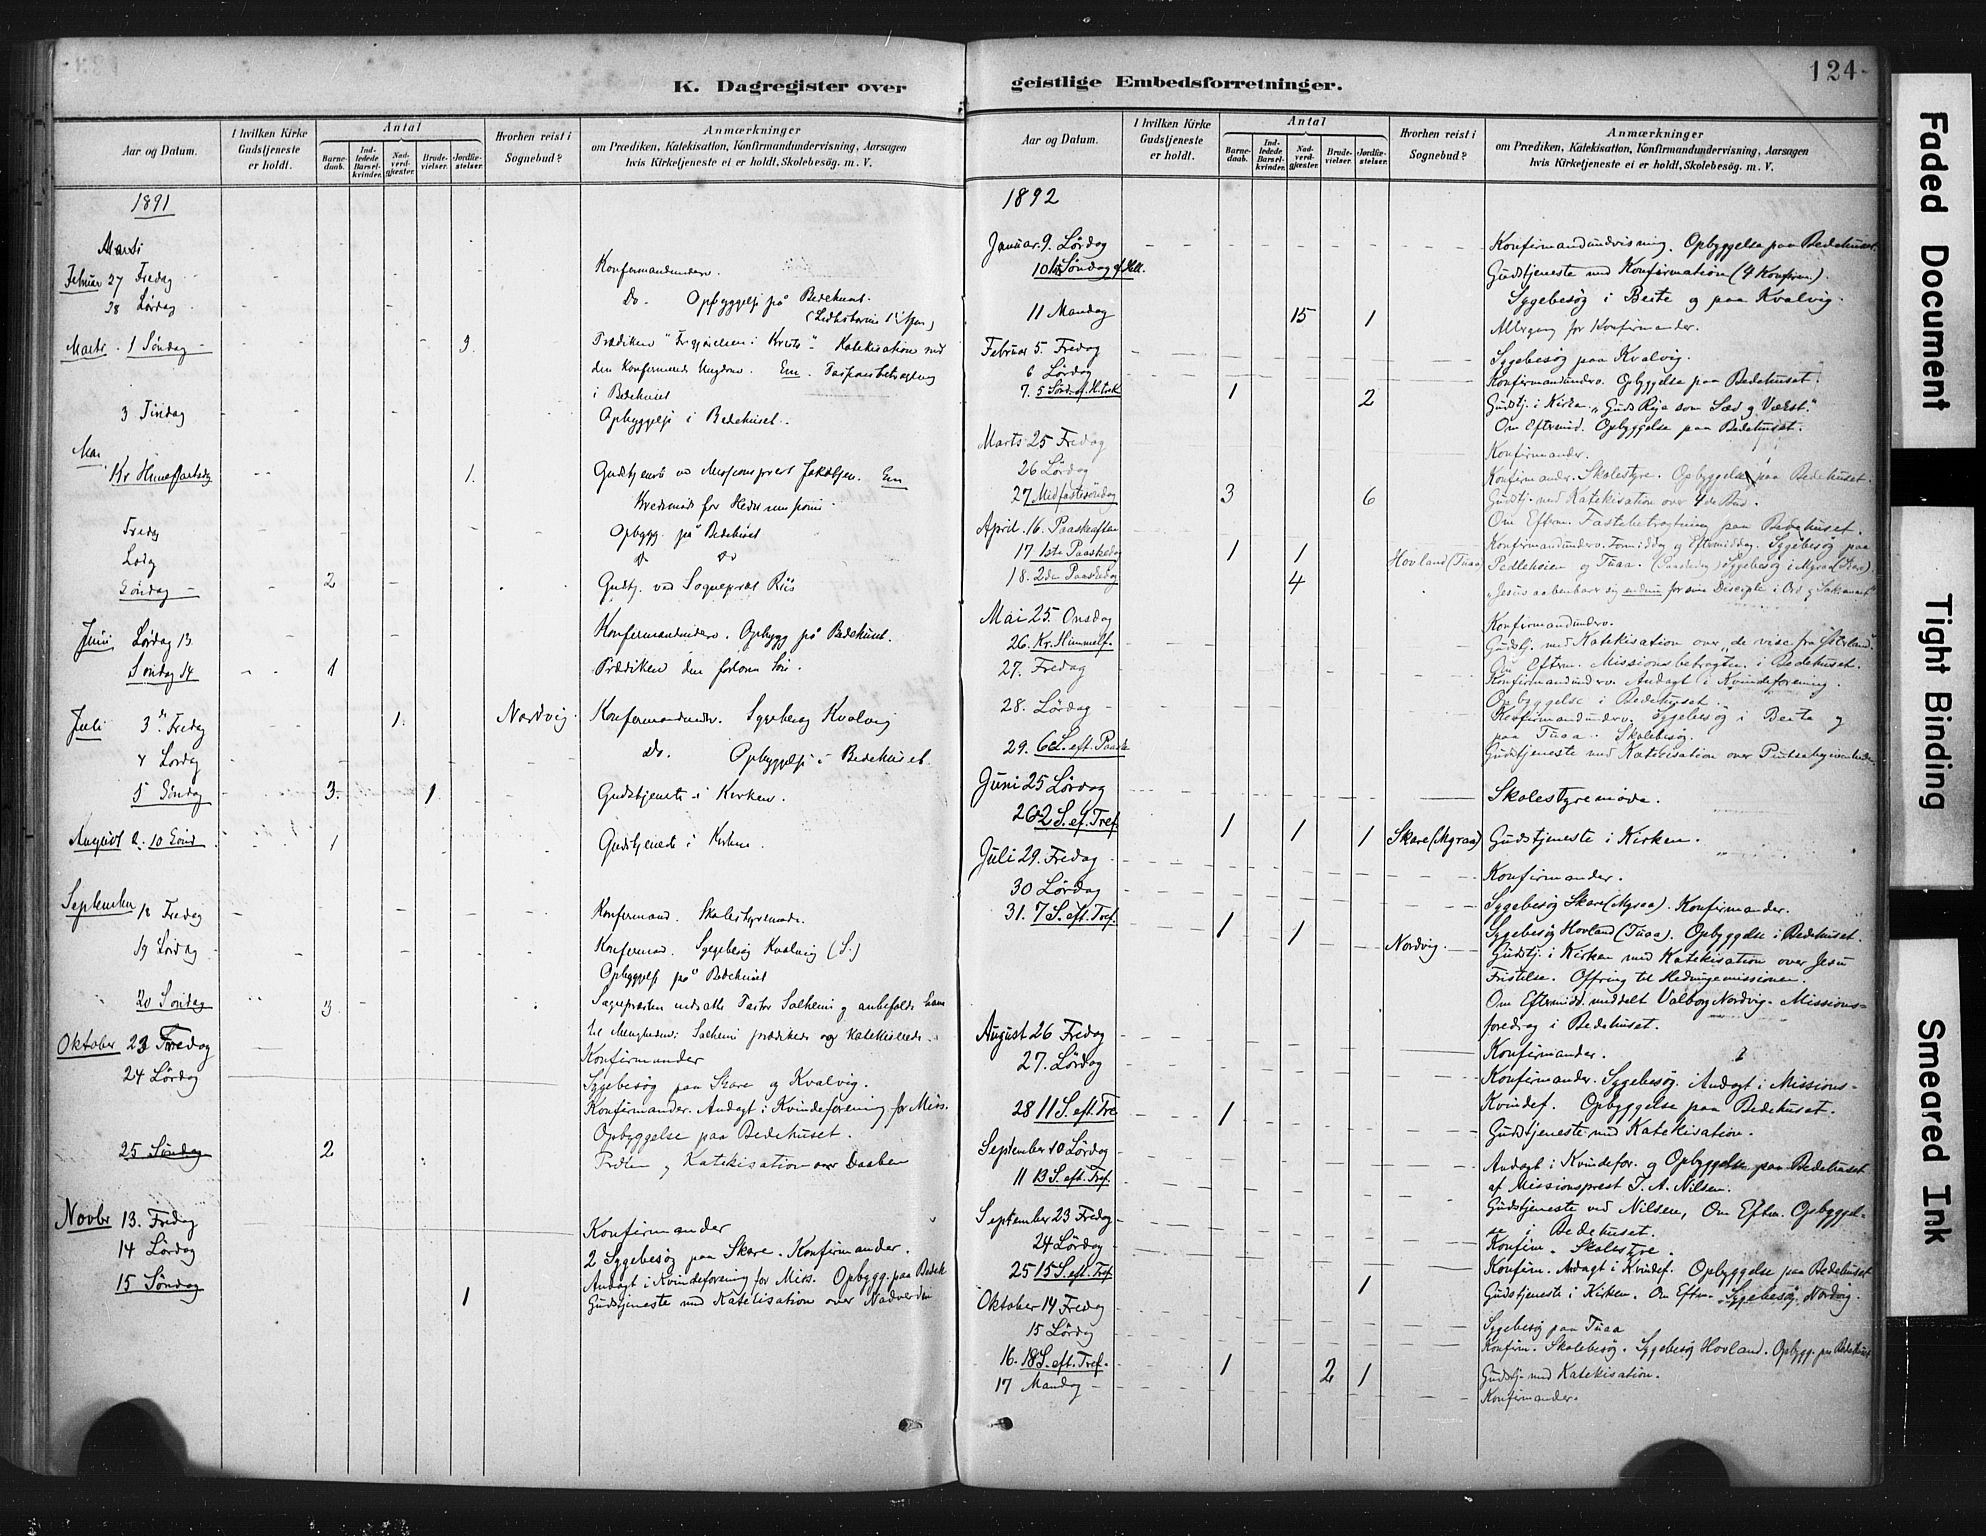 K. Dagregister over
Aar og Datum.
I hvilken Kirke Gudstjeneste er holdt.
Antal
Barnedaab.
Indledede Barselkvinder.
Nadverdgjæster.
Brudevielser.
Jordfæstelser.
Hvorhen reist i Sognebud?
Anmærkninger
om Prædiken, Katekisation, Konfirmandundervisning, Aarsagen
hvis Kirketjeneste ei er holdt, Skolebesøg. m. V.
1891
Marts
Februar 27 Fredag
28 Lørdag Do. Opbyggelse på Bedehuset.
Marts 1 Søndag 3 Prædiken Katekisation med
den Konfirmerede Ungdom. Em.
i Bedehuset
3 Tirsdag Opbyggelse i Bedehuset.
Mai
Kr Himmelfartsdag 1. Em
Opbygg. på Bedehuset
Do Do
Søndag 2 Gudstj. ved Sogneprest Riis
Juni Lørdag 13 Opbygg på Bedehuset.
Søndag 14 1 Prædiken den
Juli 3 Fredag 1. Nordvig. Sygebesøg Kvalvig
4 Lørdag Do. Opbyggelse i Bedehuset
5 Søndag 3. 1. Gudstjeneste i Kirken.
August 1 Gudstjeneste i Kirken.
September 18 Fredag Konfirmand. Skolestyremøde.
19 Lørdag Konfirmand. Sygebesøg Kvalvig (S.)
Opbyggelse på Bedehuset
20 Søndag 3
Oktober 23 Fredag
Konfirmander
24 Lørdag Sygebesøg paa Skare og Kvalvig.
Konfirmander. Andagt i Kvindeforening for Miss.
Opbyggelse paa Bedehuset.
25 Søndag 2 og Katekisation over Daaben
Novbr 13. Fredag Konfirmander
14 Lørdag 2 Sygebesøg paa Skare. Konfirmander.
Andagt i Kvindeforening for Miss. Opbygg. paa Bedeh
15 Søndag 1 Gudstjeneste med Katekisation over Nadverden
geistlige Embedsforretninger.
124
Aar og Datum.
I hvilken Kirke Gudstjeneste er holdt.
Antal
Barnedaab.
Indledede Barselkvinder.
Nadverdgjæster.
Brudevielser.
Jordfæstelser.
Hvorhen reist i Sognebud?
Anmærkninger
om Prædiken, Katekisation, Konfirmandundervisning, Aarsagen
hvis Kirketjeneste ei er holdt, Skolebesøg. m. V.
1892
Januar. 9. Lørdag Opbyggelse paa Bedehuset.
10 Gudstjeneste med Konfirmation (4 Konfirm.)
Sygebesøg i Beite og paa Kvalvig.
11 Mandag 15 1 for Konfirmander.
Februar 5. Fredag Sygebesøg paa Kvalvig.
6 Lørdag Konfirmandunderv. Opbyggelse paa Bedehuset.
7. 1 2 Gudstj. i Kirken. „Guds Rige som Sæd og Vækst."
Om Eftermid. Opbyggelse paa Bedehuset.
Marts 25 Fredag Konfirmander.
26 Lørdag Konfirmander. Skolestyre. Opbyggelse paa Bedehuset.
27 Midfastesøndag 3 6 Gudstj. med Katekisation over 4de Bud.
Om Efterm. Fastebetragtning paa Bedehuset.
April. 16. Paaskeaften Konfirmandunderv. Formiddag og Eftermiddag. Sygebesøg paa
17. 1ste Paaskedag 1 1 Hovland (Tuaa)
18. 2den Paaskedag 4 „Jesus aabenbarer sig endnu for sine Disciple i Ord og Sakrament"
Mai 25. Onsdag Konfirmandunderv.
26. Kr. Himmelf. Gudstj. med Katekisation over „de vise fra Østerland.
Om Efterm. Missionsbetragtn. i Bedehuset.
27. Fredag Konfirmandunderv. Andagt i Kvindeforening.
Opbyggelse i Bedehuset.
28. Lørdag Konfirmandunderv. Sygebesøg i Beite og
paa Tuaa. Skolebesøg.
29. 6 S. eft. Paaske Gudstjeneste med Katekisation over
Juni 25 Lørdag Skolestyremøde.
26 2 S. ef. Tref. 1 1 1 Skare (Myraa) Gudstjeneste i Kirken.
Juli 29. Fredag Konfirmander.
30 Lørdag Sygebesøg Skare (Myraa). Konfirmander.
Sygebesøg Hovland (Tuaa). Opbyggelse i Bedehuset.
31. 7 S. eft. Tref. 1 1 Nordvig. Gudstj. i Kirken med Katekisation over Jesu
Fristelse. Offring til Hedningemissionen.
Om Eftermidd. meddelt Valborg Nordvig. Missions-
foredrag i Bedehuset.
August 26 Fredag Konfirmander.
27. Lørdag Konfirmander. Sygebesøg. Andagt i Missions-
Kvindef. Opbyggelse paa Bedehuset.
28 11 S. eft. Tre 1 Gudstjeneste med Katekisation.
September 10 Lørdag Andagt i Kvindefor. og Opbyggelse paa Bedehuset
af Missionsprest T. A. Nilsen.
11 13 S. eft. Tref. Gudstjeneste ved Nilsen, Om Eftm. Opbyggel-
se i Bedehuset.
September 23 Fredag Konfirm. Skolestyre.
24 Lørdag Konfirm. Andagt i Kvindef. Opbyggelse paa Bedehuset
25 15 S. eft. Tref 1 Gudstjeneste i Kirken. Om Eftm. Sygebesøg Nordvig.
Oktober 14 Fredag Sygebesøg paa Tuaa
15 Lørdag Konfirm. Skolebesøg. Sygebesøg Hovland. Opbygg. paa Bedehuset
16. 18 S. eft. Tref. 1 2 1 Gudstj. med Katekisation.
17 Mandag Konfirmander.
Faded Document
Tight Binding
Smeared Ink